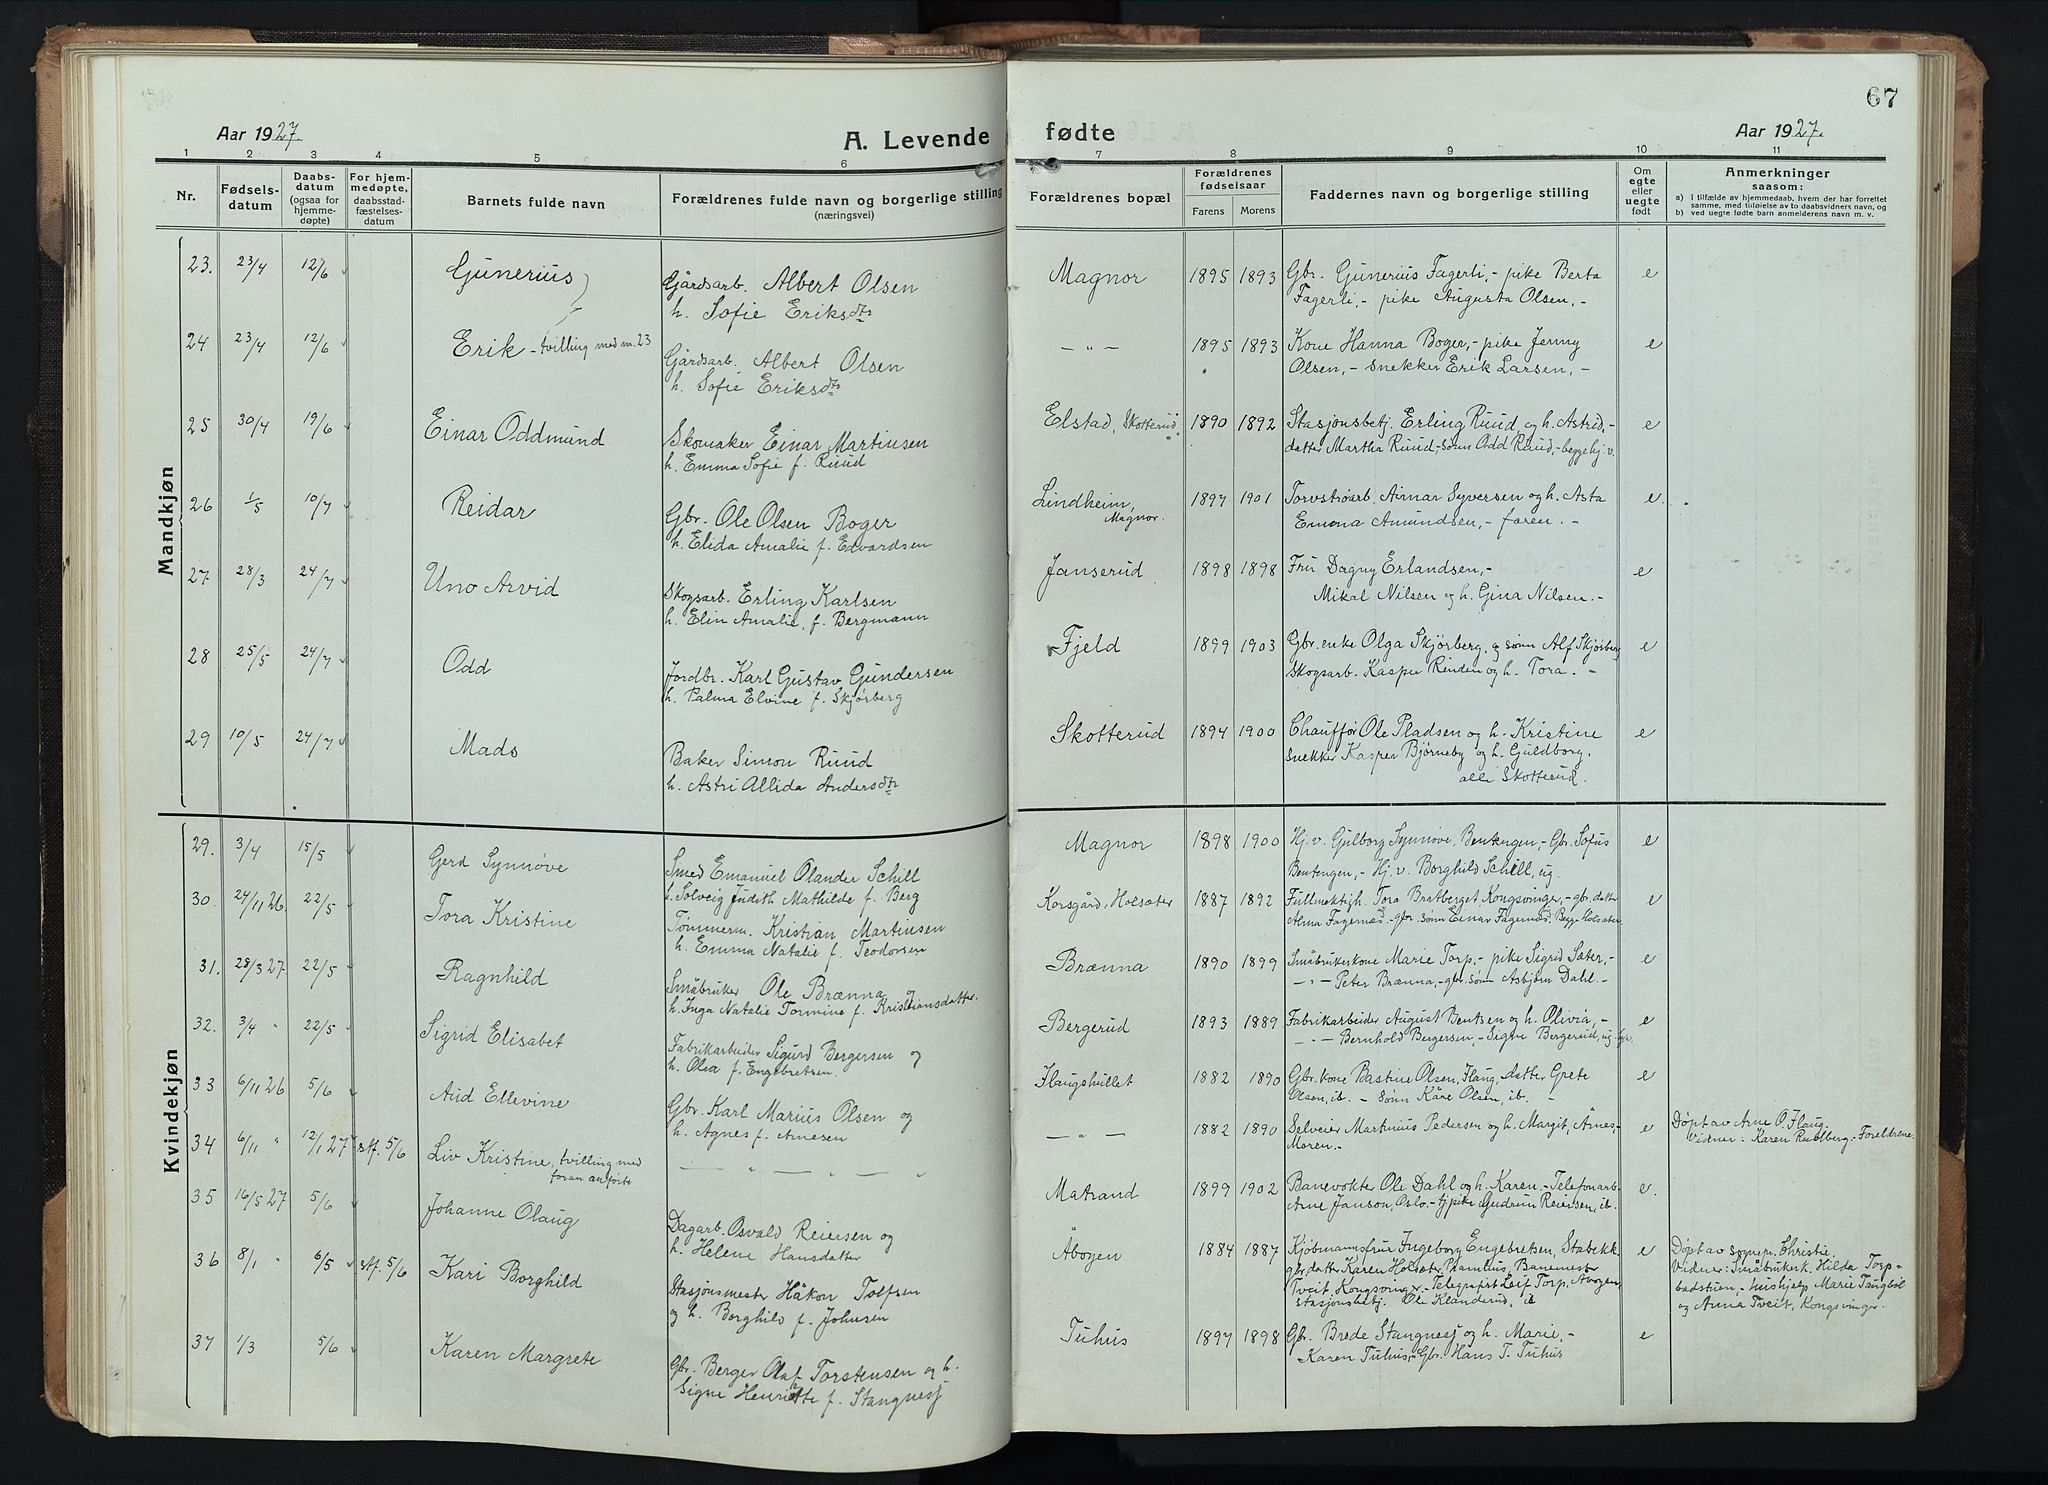 67
Aar 1927. A. Levende fødte Aar 1927.
1 2 3 4 5 6 7 8 9 10 11
Nr. Fødsels-datum Daabs-datum (ogsaa for hjemme-døpte) For hjem-medøpte, daabsstad-fæstelses-datum Barnets fulde navn Forældrenes fulde navn og borgerlige stilling (næringsvei) Forældrenes bopæl Forældrenes fødselsaar Farens Morens Faddernes navn og borgerlige stilling Om egte eller uegte født Anmerkninger saasom:
a) I tilfælde av hjemmedaab, hvem der har forrettet samme, med tilføielse av to daabsvidners navn, og
b) ved uegte fødte barn anmelderens navn m. v.
Mandkjøn
23. 23/4 12/6 Gunerius Gårdsarb. Albert Olsen Magnor 1895 1893 Gbr. Gunerius Fagerli, - pike Berta e
h. Sofie Eriksdtr Fagerli, - pike Augusta Olsen, -
24 23/4 12/6 Erik - tvilling med nr. 23 Gårdsarb. Albert Olsen — „ — 1895 1893 Kone Hanna Boger, - pike Jenny e
h. Sofie Eriksdtr Olsen, - snekker Erik Larsen, -
25 30/4 19/6 Einar Oddmund Skomaker Einar Martinsen Elstad, Skotterud 1890 1892 Stasjonsbetj. Erling Ruud, og h. Astrid, - e
h. Emma Sofie f. Ruud datter Martha Ruud, - sønn Odd Ruud, - begge hj. v.
26 1/5 10/7 Reidar Gbr. Ole Olsen Boger Lindheim, Magnor. 1897 1901 Torvstrøarb. Aimar Syversen og h. Asta e.
h. Elida Amalie f. Edvardsen Emma Amundsen, - faren. -
27 28/3 24/7 Uno Arvid Skogsarb. Erling Karlsen Janserud 1898 1898 Fru Dagny Erlandsen, - e
h. Elin Amalie, f. Bergmann Mikal Nilsen og h. Gina Nilsen. -
28 25/5 24/7 Odd Jordbr. Karl Gustav Gundersen Fjeld 1899 1903 Gbr. enke Olga Skjørberg, og sønn Alf Skjørberg e
h. Palma Elvine f. Skjørberg Skogsarb. Kasper Rinden og h. Tora. -
29 10/5 24/7 Mads Baker Simon Ruud Skotterud 1894 1900 Chauffør Ole Pladsen og h. Kristine e
h. Astri Allida Andersdtr snekker Kasper Bjørneby og h. Guldborg.
alle Skotterud.
Kvindekjøn
29. 3/4 15/5 Gerd Synnøve Smed Emanuel Olander Schill Magnor 1898 1900 Hj. v. Gulborg Synnøve Bentengen, - Gbr. Sofus e
h. Solveig Judith Mathilde f. Berg Bentengen, - Hj. v. Borghild Schill, ug.
30. 24/11 26. 22/5 Tora Kristine Tømmerm. Kristian Martinsen Korsgård, Holsæter 1887 1892 Fullmektigh. Tora Bratberget, Kongsvinger, - gbr. datter e
h. Emma Natalie f. Teodorsen Alma Fagernæs, - gbr. sønn Einar Fagernæs. Begge Holsæter
31. 28/3 27. 22/5 Ragnhild Småbruker Ole Brænna og Brænna 1890 1899 Småbrukerkone Marie Torp, - pike Sigrid Sæter, - e
h. Inga Natalie Tormine f. Kristiansdatter. — „ — Peter Brænna, - gbr. sønn Asbjørn Dahl. -
32. 3/4 „ 22/5 Sigrid Elisabet Fabrikarbeider Sigurd Bergersen og Bergerud 1893 1889 Fabrikarbeider August Bentsen og h. Olivia, - e
h. Olea f. Engebretsen. — „ — Bernhold Bergersen, - Signe Bergerud, ug.
33 6/11 26 5/6 Aud Ellevine Gbr. Karl Marius Olsen og Flaugshullet 1882 1890 Gbr. kone Bastine Olsen, Flaug, datter Grete e
h. Agnes f. Arnesen Olsen, ib. - sønn Kåre Olsen, ib. -
34 6/11 „ 12/1 27 stf. 5/6 Liv Kristine, tvilling med foran anførte — „ — „ — „ — „ — 1882 1890 Selveier Martinius Pedersen og h. Margit, Årnes- e Døpt av Arne O. Flaug.
Moren. - Vidner: Karen Rustberg. - Foreldrene.
35 16/5 27 5/6 Johanne Olaug Dagarb. Osvald Reiersen og Matrand 1899 1902 Banevokter Ole Dahl og h. Karen. - Telefonarb. e.
h. Helene Hansdatter Arne Janson, Oslo. - tj. pike Gudrun Reiersen, ib.
36 8/1 „ 6/5 stf. 5/6 Kari Borghild Stasjonsmester Håkon Tolfsen Åbogen 1884 1887 Kjøbmannsfrue Ingeborg Engebretsen, Stabekk. e Døpt av sognepr. Christie.
og h. Borghild f. Johnsen gbr. datter Karen Holsæter, Banemester Vidner: Småbrukerk. Hilda Torp-
Tveit, Kongsvinger. - Telegrafist Leif Torp, Åbogen, badstuen, - hushjelp Marie Tangbøl
stasjonsbetj. Ole Klanderud, ib og Anna Tveit, Kongsvinger.
37 1/3 5/6 Karen Margrete Gbr. Berger Olaf Torstensen og h. Tuhus 1897 1898 Gbr. Brede Stangnesj og h. Marie, - e
Signe Henriette f. Stangnesj Karen Tuhus, - Gbr. Hans T. Tuhus